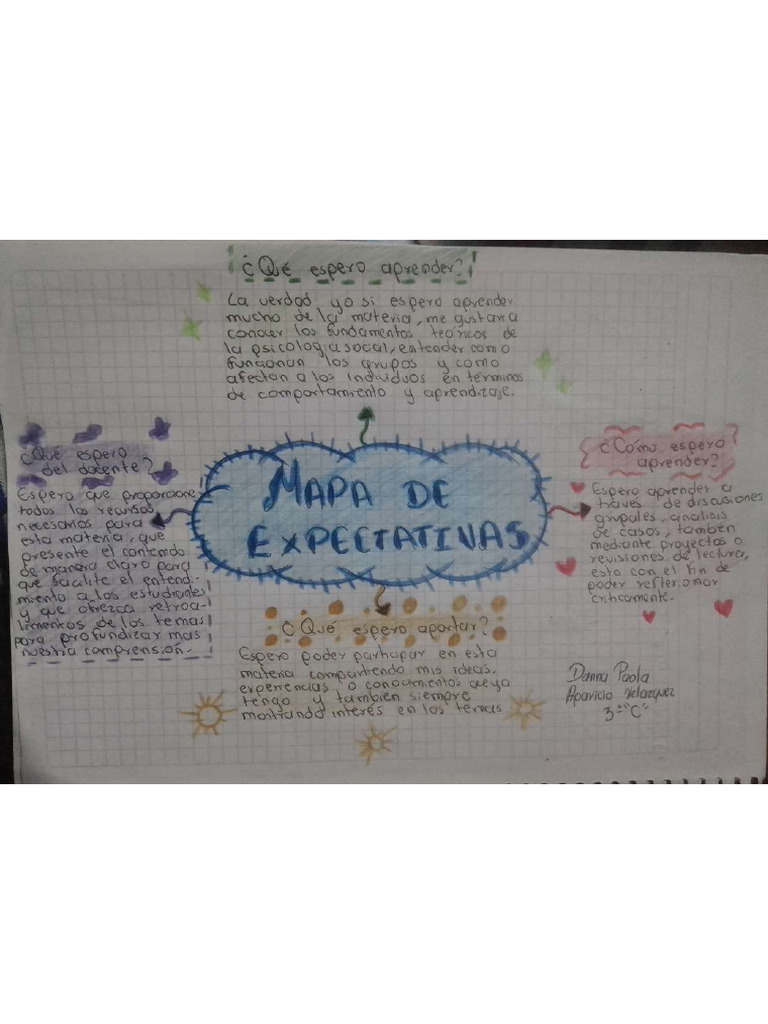 ¿Qué espero aprender?
La verdad, yo si espero aprender
mucho de la materia, me gustaria
conocer los fundamentos teóricos de
la psicologia social, entender como
funcionan los grupos y como
afectan a los individuos en términos
de comportamiento y aprendizaje.
¿Qué espero
del docente?
Espero que proporcione
todos los recursos
necesarios para
esta materia, que
presente el contenido
de manera clara para
que facilite el entendi-
miento a los estudiantes
y que ofrezca retroa-
limentos de los temas
para profundizar mas
nuestra comprensión.
MAPA DE
EXPECTATIVAS
¿Cómo espero
aprender?
Espero aprender a
través de discusiones
grupales, analisis
de casos, tambien
mediante proyectos o
revisiones de lectura,
esto con el fin de
poder reflexionar
criticamente.
¿Qué espero aportar?
Espero poder participar en esta
materia compartiendo mis ideas,
experiencias o conocimientos que ya
tengo y tambien siempre
mostrando interés en los temas
Danna Paola
Aparicio Velazquez
3° "C"